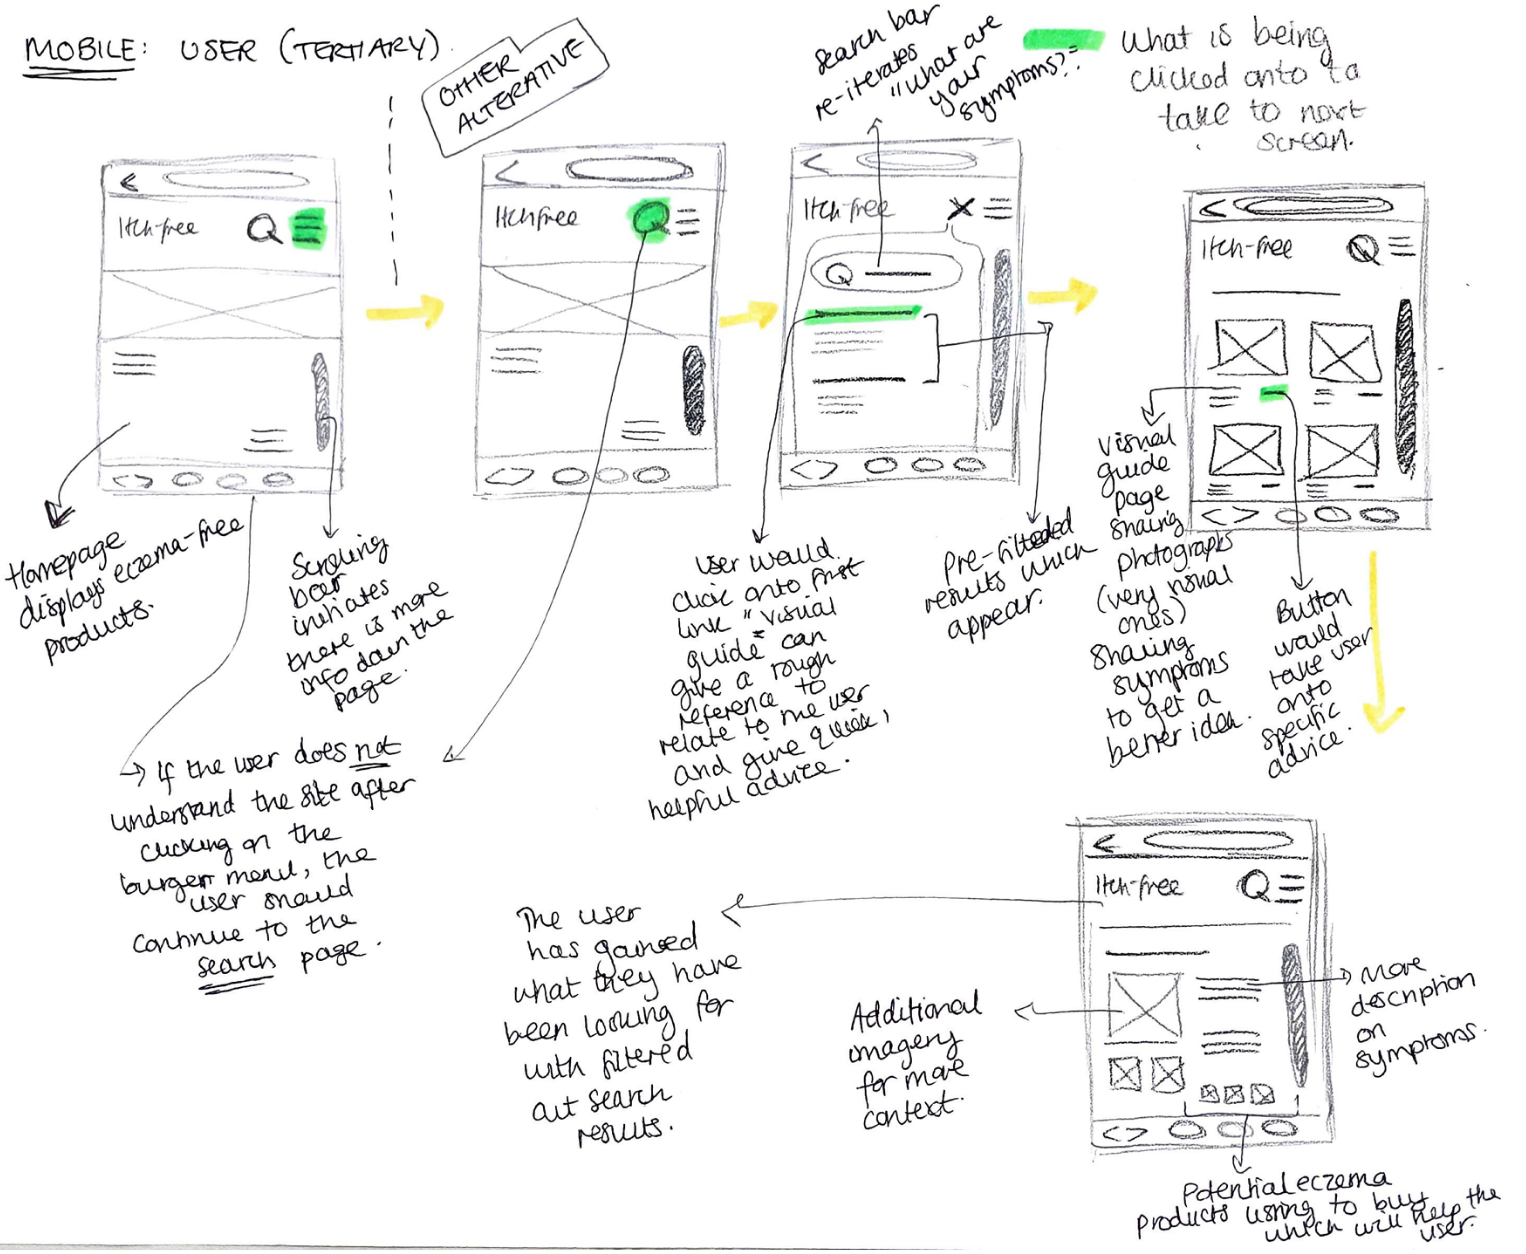 MOBILE: USER (TERTIARY).
OTHER
ALTERATIVE
Search bar
re-iterates
"what are
your
symptoms?"
What is being
clicked onto to
take to next
screen.
Itch-free
Itchfree
Itch-free
Itch-free
Homepage
displays eczema-free
products.
Scrolling
bar
initiates
there is more
info down the
page.
If the user does not
understand the site after
clicking on the
burger menu, the
user should
continue to the
search page.
User would
click onto first
link "visual
guide" can
give a rough
reference to
relate to the user
and give quick,
helpful advice.
Pre-filtered
results which
appear.
Visual
guide
page
sharing
photographs
(very visual
ones)
sharing
symptoms
to get a
better idea.
Button
would
take user
onto
specific
advice.
Itch-free
The user
has gained
what they have
been looking for
with filtered
out search
results.
Additional
imagery
for more
context.
More
description
on
symptoms.
Potential eczema
products
to buy
which will help the
user.